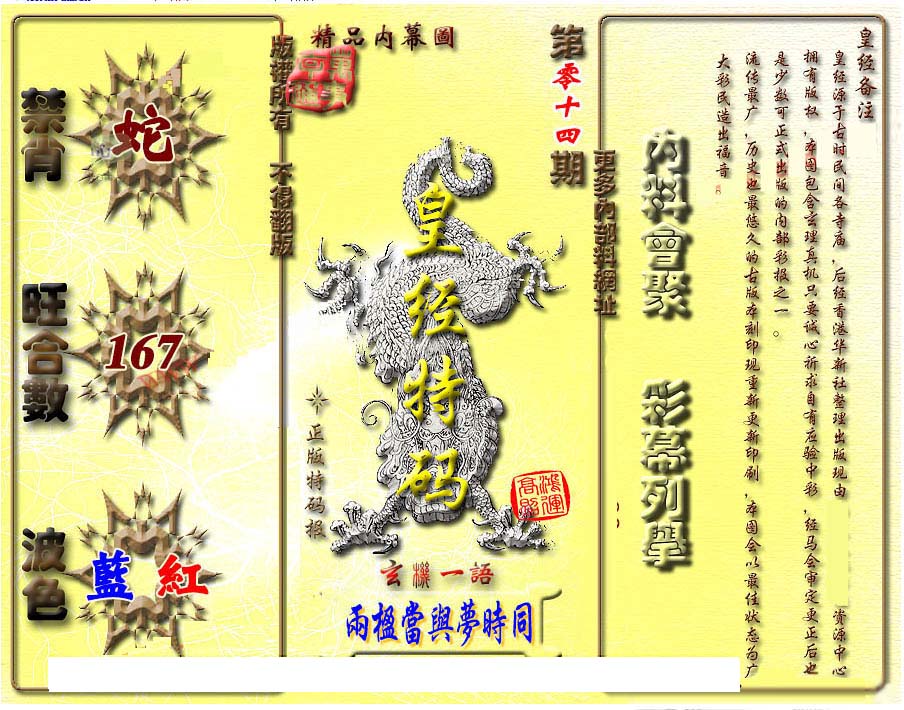 皇经备注
皇经源于古时民间各寺庙，后经香港华新社整理出版现由
资源中心
拥有版权，本图包含玄理真机只要诚心祈求自有应验中彩，经马会审定更正后也
是少数可正式出版的内部彩报之一。
流传最广，历史也最悠久的古版本刻印现重新更新印刷，本图会以最佳状态为广
大彩民造出福音
內料會聚
彩幕列舉
更多內部料網址
第零十四期
精品内幕圖
皇经特码
正版特码报
鴻運高照
玄機一語
兩楹當與夢時同
版權所有 不得翻版
禁肖
蛇
旺合數
167
波色
藍 紅